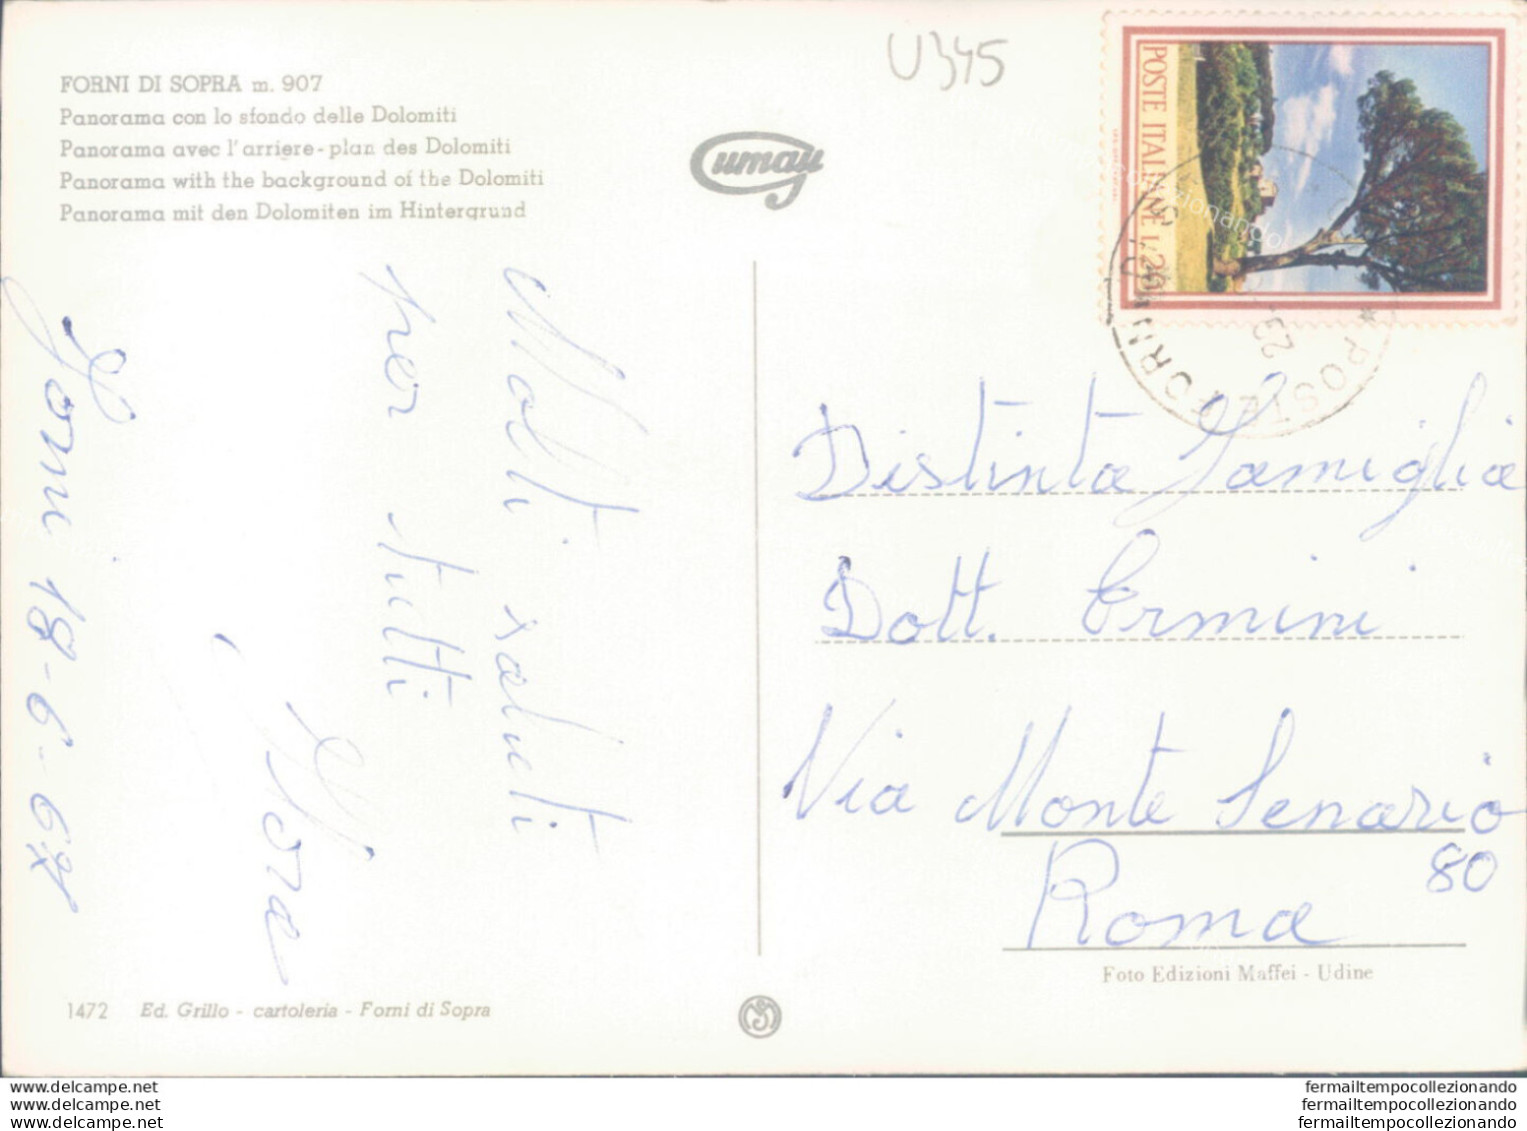 U345
FORNI DI SOPRA m. 907
Panorama con lo sfondo delle Dolomiti
Panorama avec l'arriere-plan des Dolomiti
Panorama with the background of the Dolomiti
Panorama mit den Dolomiten im Hintergrund
Cumay
POSTE ITALIANE L. 20
* POSTE * FORNI DI
Molti saluti
per tutti
Forni 18-6-67
Distinta Famiglia
Dott. Ermini
Via Monte Senario
80
Roma
Foto Edizioni Maffei - Udine
1472 Ed. Grillo - cartoleria - Forni di Sopra
delcampe.net
delcampe.net
delcampe.net
fermailtempocollezionando
fermailtempocollezionando
fermailtempocollezionando